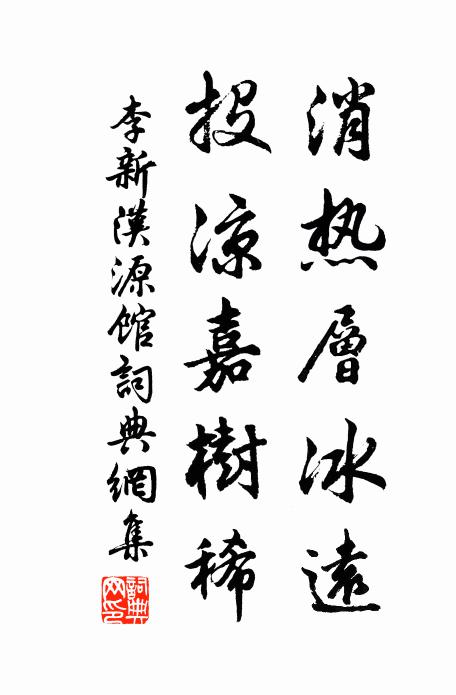 消热層冰遠
投涼嘉樹稀
李新漢源館詞典網集
詞典网印